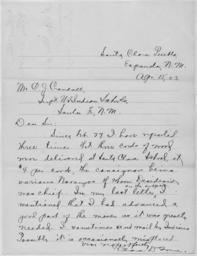 Santa Clara Pueblo
Espanola, N.M.
Apr. 15, 02
Mr. C. J. Crandall,
Supt. US Indian School,
Santa Fe, N.M.
Dear Sir:
Since Feb. 27 I have reported
three times that five cords of wood
were delivered at Santa Clara School at
per cord, the consignor being
Naranjo of whom
was chief. In my last letter I
mentioned that I had advanced a
good part of the money as it was greatly
needed. I sometimes send mail by
Pueblo it is occasionally
Very respectfully,